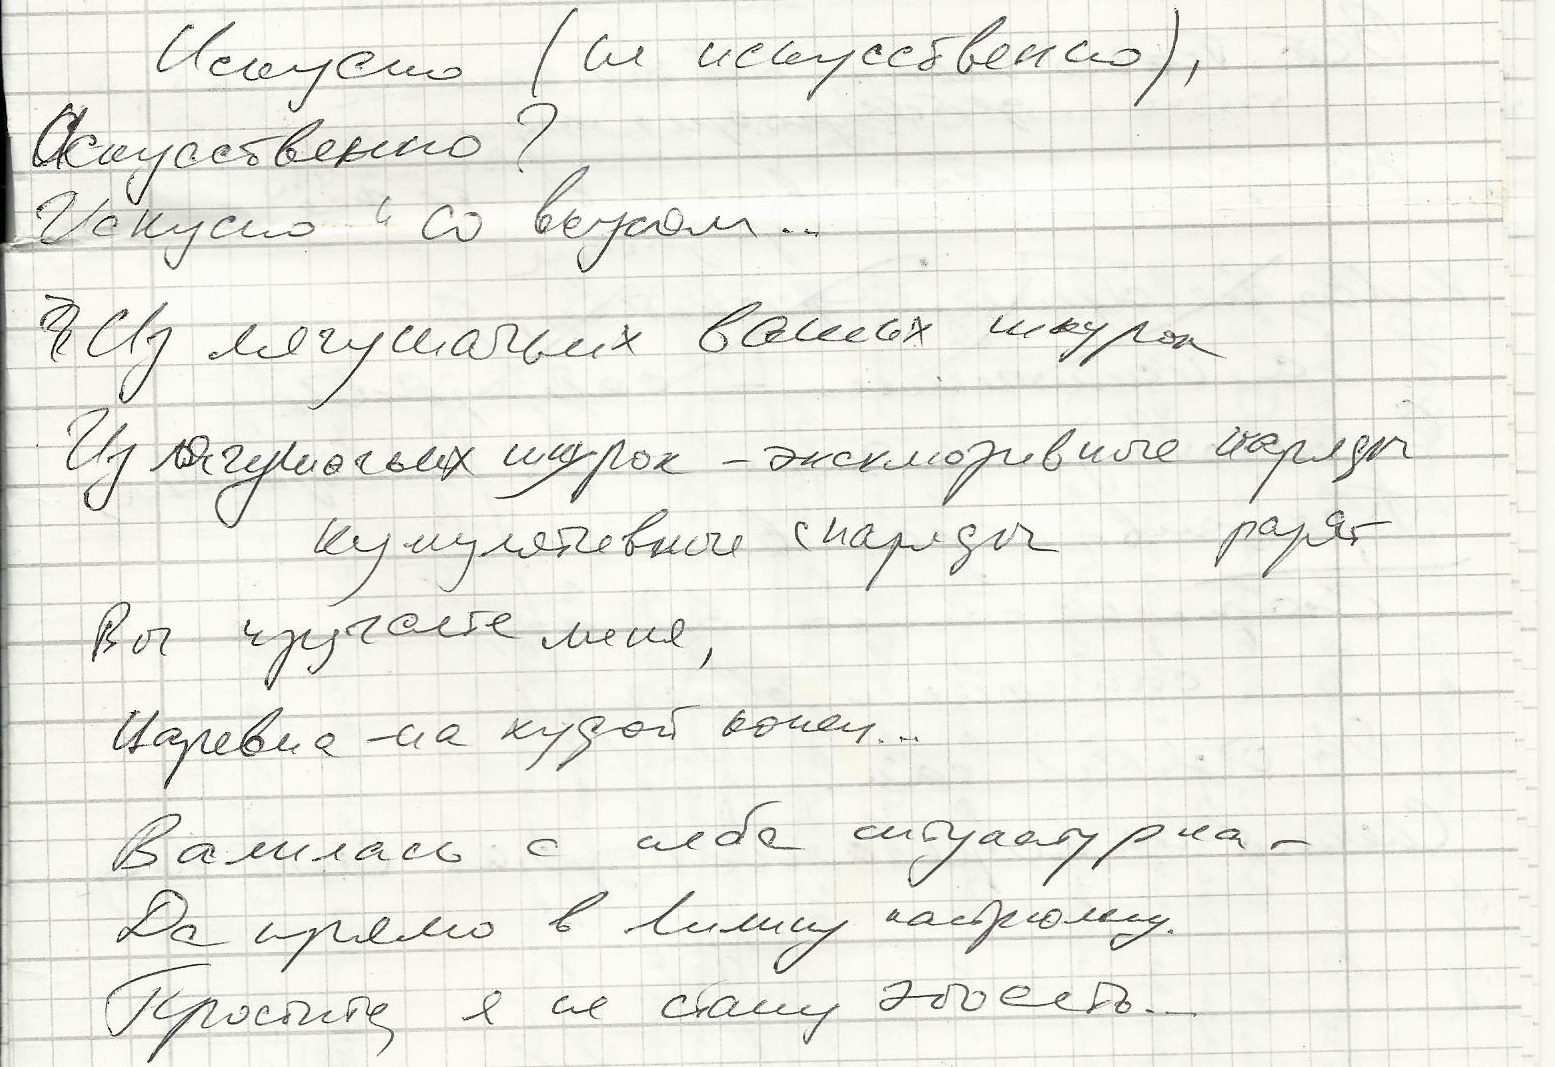 Искусно (не искусственно),
Искусственно?
Искусно и со вкусом...
Из лягушачьих ваших шкурок
Из лягушачьих шкурок - эксклюзивные наряды
кумулятивные снаряды разят
Вы
меня,
Царевна - на худой конец...
Валилась с неба
Да прямо в Лилину кастрюльку.
Простите, я не стану это есть...